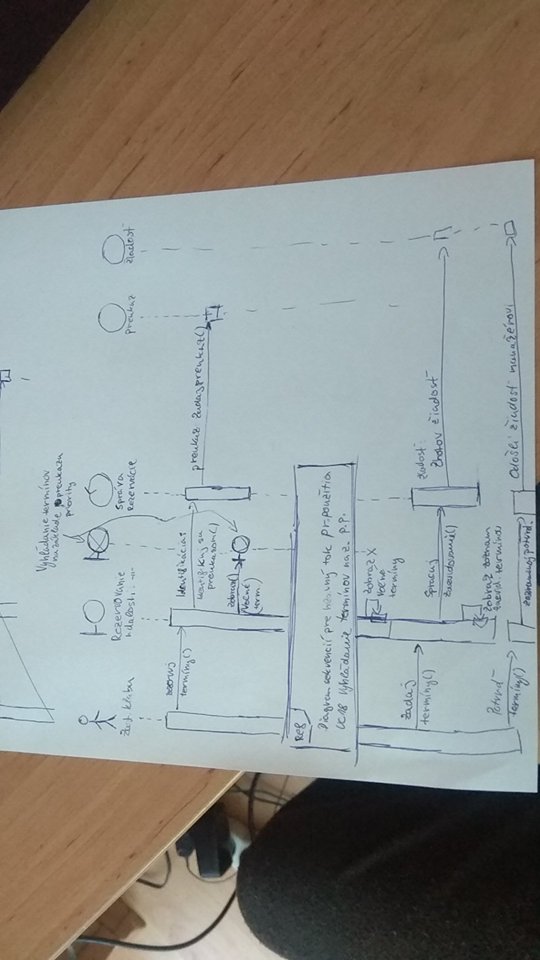 Vyhľádanie termínov
na základe preukazu
priority
Rezervovanie
udalosti
Správa
Rezervácie
preukaz
žiadosť
termíny()
Identifikácia:
identifikuj sa
preukazom()
preukaz žadaj preukaz()
zobraz()
Voľné
term.
REF
Diagram sekvencií pre hlavný tok pr. použitia
UC18 Vyhľádanie termínov na z. P.P.
zobraz
Voľné
termíny
Zadaj
termíny()
Spracuj
žiadosť:
Zhotov žiadosť
zobraz zoznam
termínov
Potvrď
termíny()
zaznamenaj potvrd.
Odošli žiadosť manažérovi